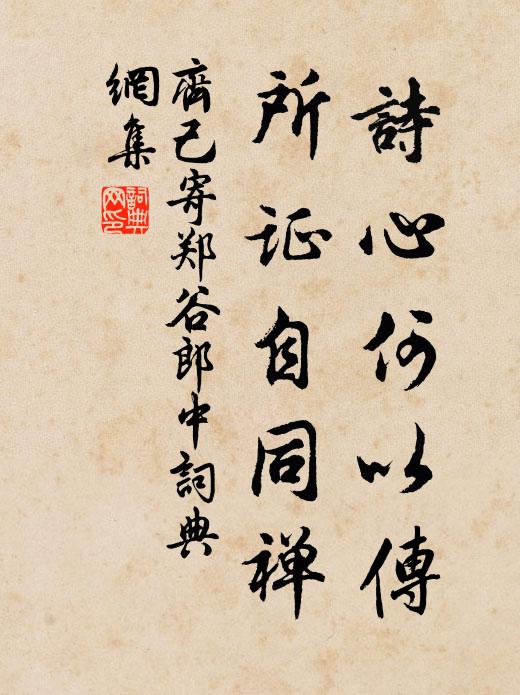 詩心何以傳
所证自同禅
齊己寄郑谷郎中詞典
網集
詞典
网印